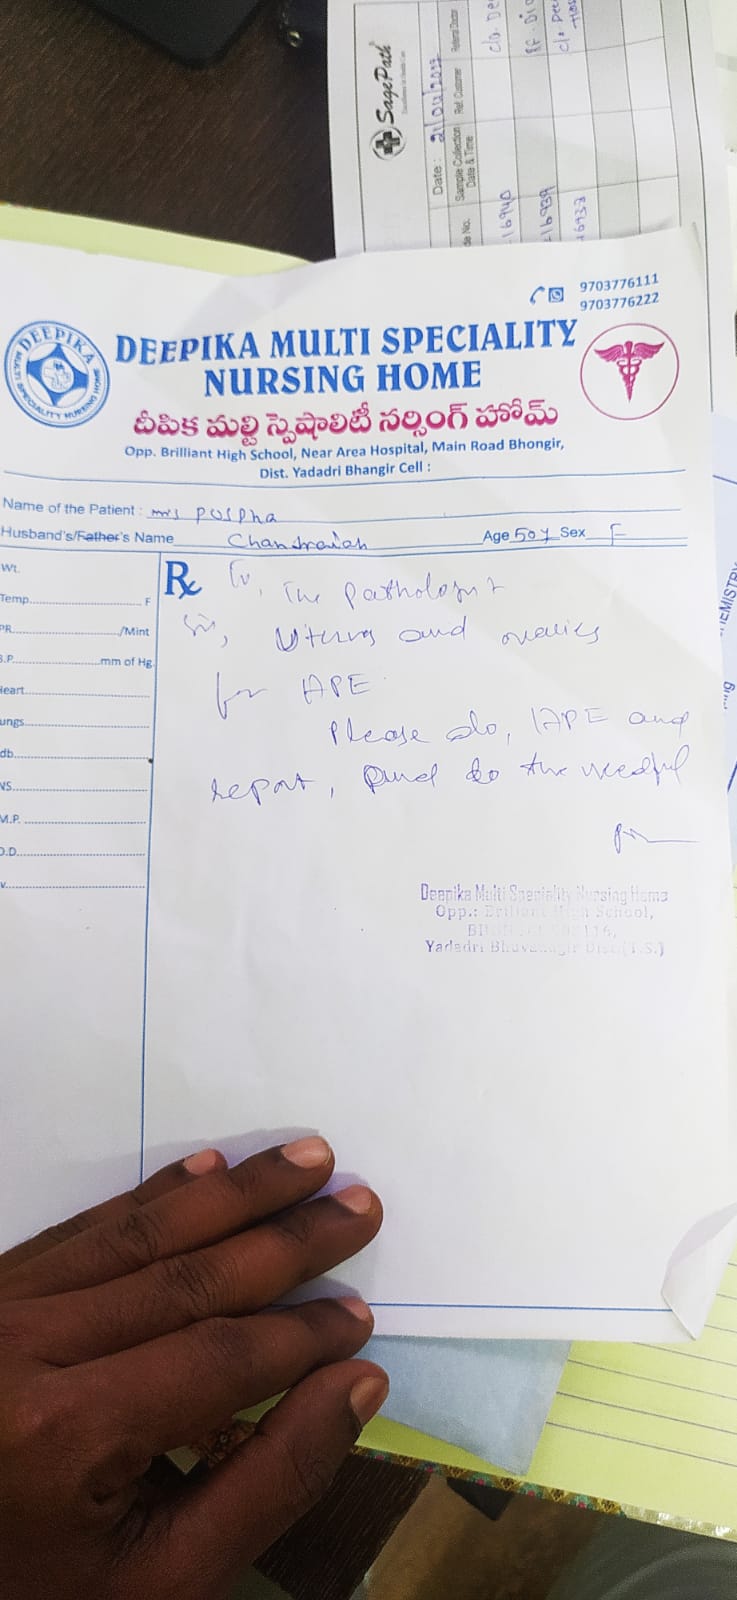 SagePath
Date : 21/04/2022
Sample Collection Date & Time
Ref. Customer
Referral Doctor
de No.
16940
16939
16937
9703776111
9703776222
DEEPIKA
MULTI SPECIALITY NURSING HOME
DEEPIKA MULTI SPECIALITY
NURSING HOME
దీపిక మల్టి స్పెషాలిటీ నర్సింగ్ హోమ్
Opp. Brilliant High School, Near Area Hospital, Main Road Bhongir,
Dist. Yadadri Bhangir Cell :
Name of the Patient : mrs puspha
Husband's/Father's Name Chandraiah Age 50 y Sex F
Wt.
Temp. F
PR /Mint
B.P. mm of Hg.
Heart
ungs
db
VS
M.P.
D.D
v
Rx To, The Pathologist
Sir, Uterus and ovaries
for HPE
Please do, HPE and
report, and do the needful
Deepika Multi Speciality Nursing Home
Opp.: Brilliant High School,
Yadadri Bhuvanagir Dist.(T.S.)
EMISTRY